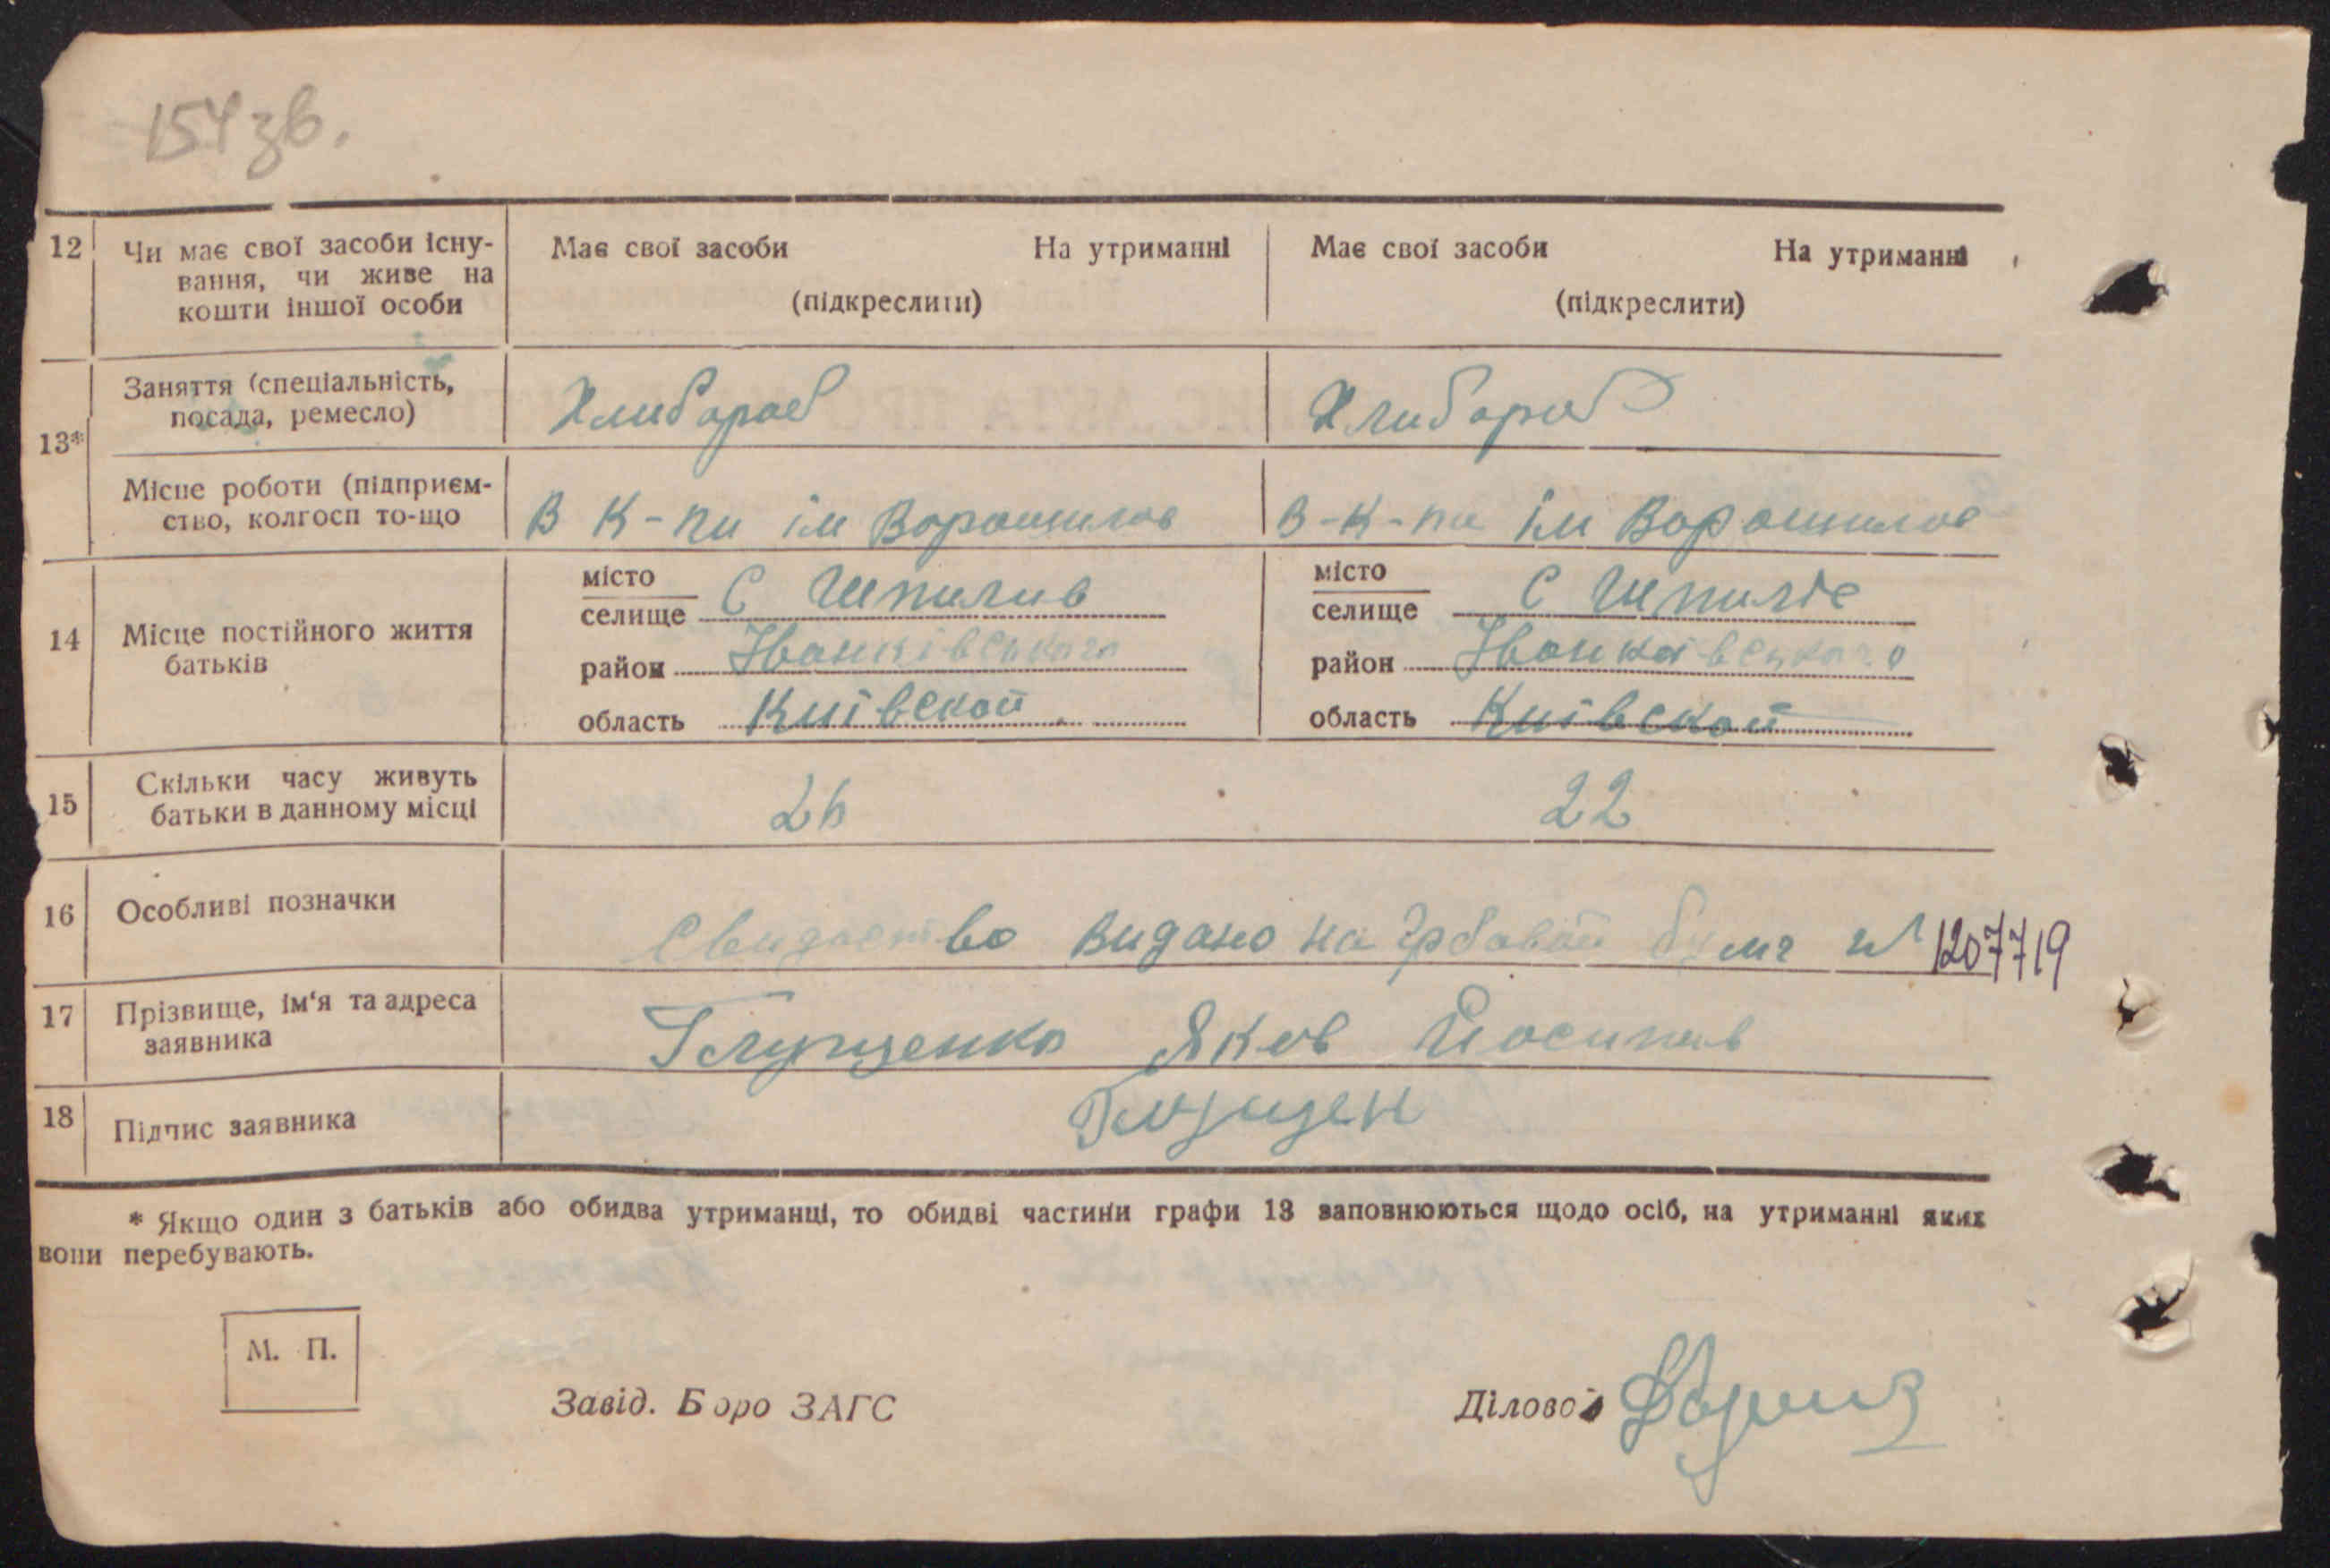 154 зв.
12 Чи має свої засоби існу- Має свої засоби На утриманні Має свої засоби На утриманні
вання, чи живе на
кошти іншої особи (підкреслити) (підкреслити)
Заняття (спеціальність, Хлибороб Хлибороб
посада, ремесло)
13*
Місце роботи (підприєм- В К-пи ім Ворошилов В-К-пи ім Ворошилов
ство, колгосп то-що
місто місто
селище С Шпилив селище С Шпилів
14 Місце постійного життя
батьків
район Іванківського район Іванковського
область Київской область Київской
15 Скільки часу живуть 26 22
батьки в данному місці
16 Особливі позначки
Свидоство видано на грбовой бумг № 1207719
17 Прізвище, ім'я та адреса Глущенко Яков Йосипов
заявника
18 Підпис заявника Глущен
* Якщо один з батьків або обидва утриманці, то обидві частини графи 13 заповнюються щодо осіб, на утриманні яких
вони перебувають.
М. П.
Завід. Бюро ЗАГС Діловод